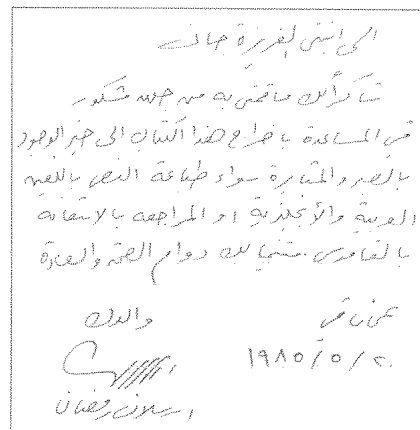 الى ابنتي العزيزة جانيت
شاكراً لك ما قمتي به من جهد مشكور
في المساعدة باخراج هذا الكتاب الى حيز الوجود
بالصبر والمثابرة سواء طباعة النص باللغتين
العربية والأنجليزية او المراجعة بالاستعانة
بالقاموس متمنيا لك دوام الصحة والسعادة
عمان في
١٩٨٥/٥/٢٠
والدك
ارسلان رمضان